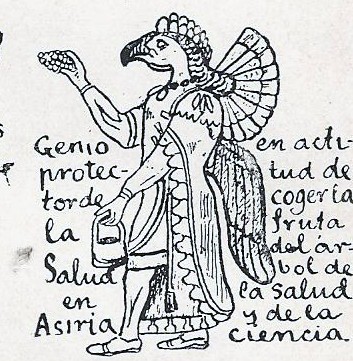 Genio
protec-
tor de
la
Salud
en
Asiria
en acti-
tud de
coger la
fruta
del ar-
bol de
la salud
y de la
ciencia.